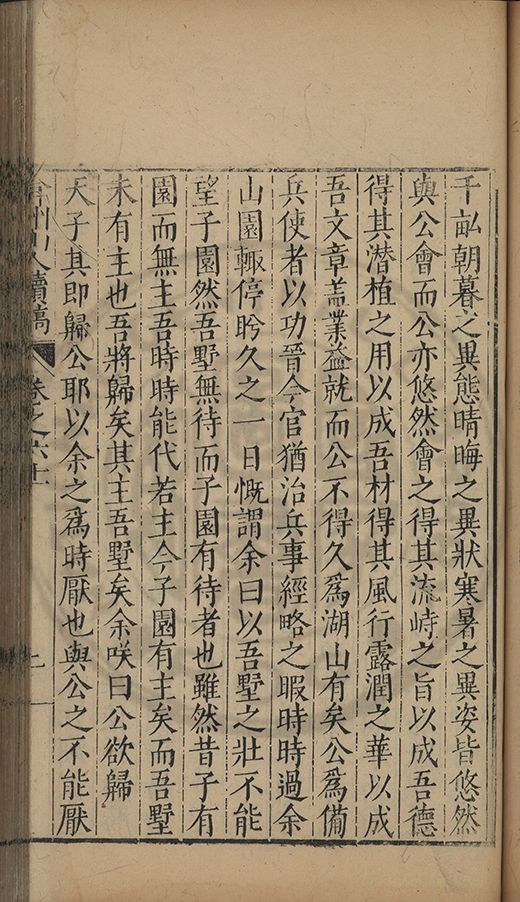 千畝朝暮之異態晴晦之異狀寒暑之異姿皆悠然
與公會而公亦悠然會之得其流峙之旨以成吾德
得其潜植之用以成吾材得其風行露潤之華以成
吾文章盖業益就而公不得久爲湖山有矣公爲備
兵使者以功晉今官猶治兵事經略之暇時時過余
山園輙停盻久之一日慨謂余曰以吾墅之壯不能
望子園然吾墅無待而子園有待者也雖然昔子有
園而無主吾時時能代若主今子園有主矣而吾墅
未有主也吾將歸矣其主吾墅矣余咲曰公欲歸
天子其即歸公耶以余之爲時厭也與公之不能厭
弇州山人續稿
卷之六十